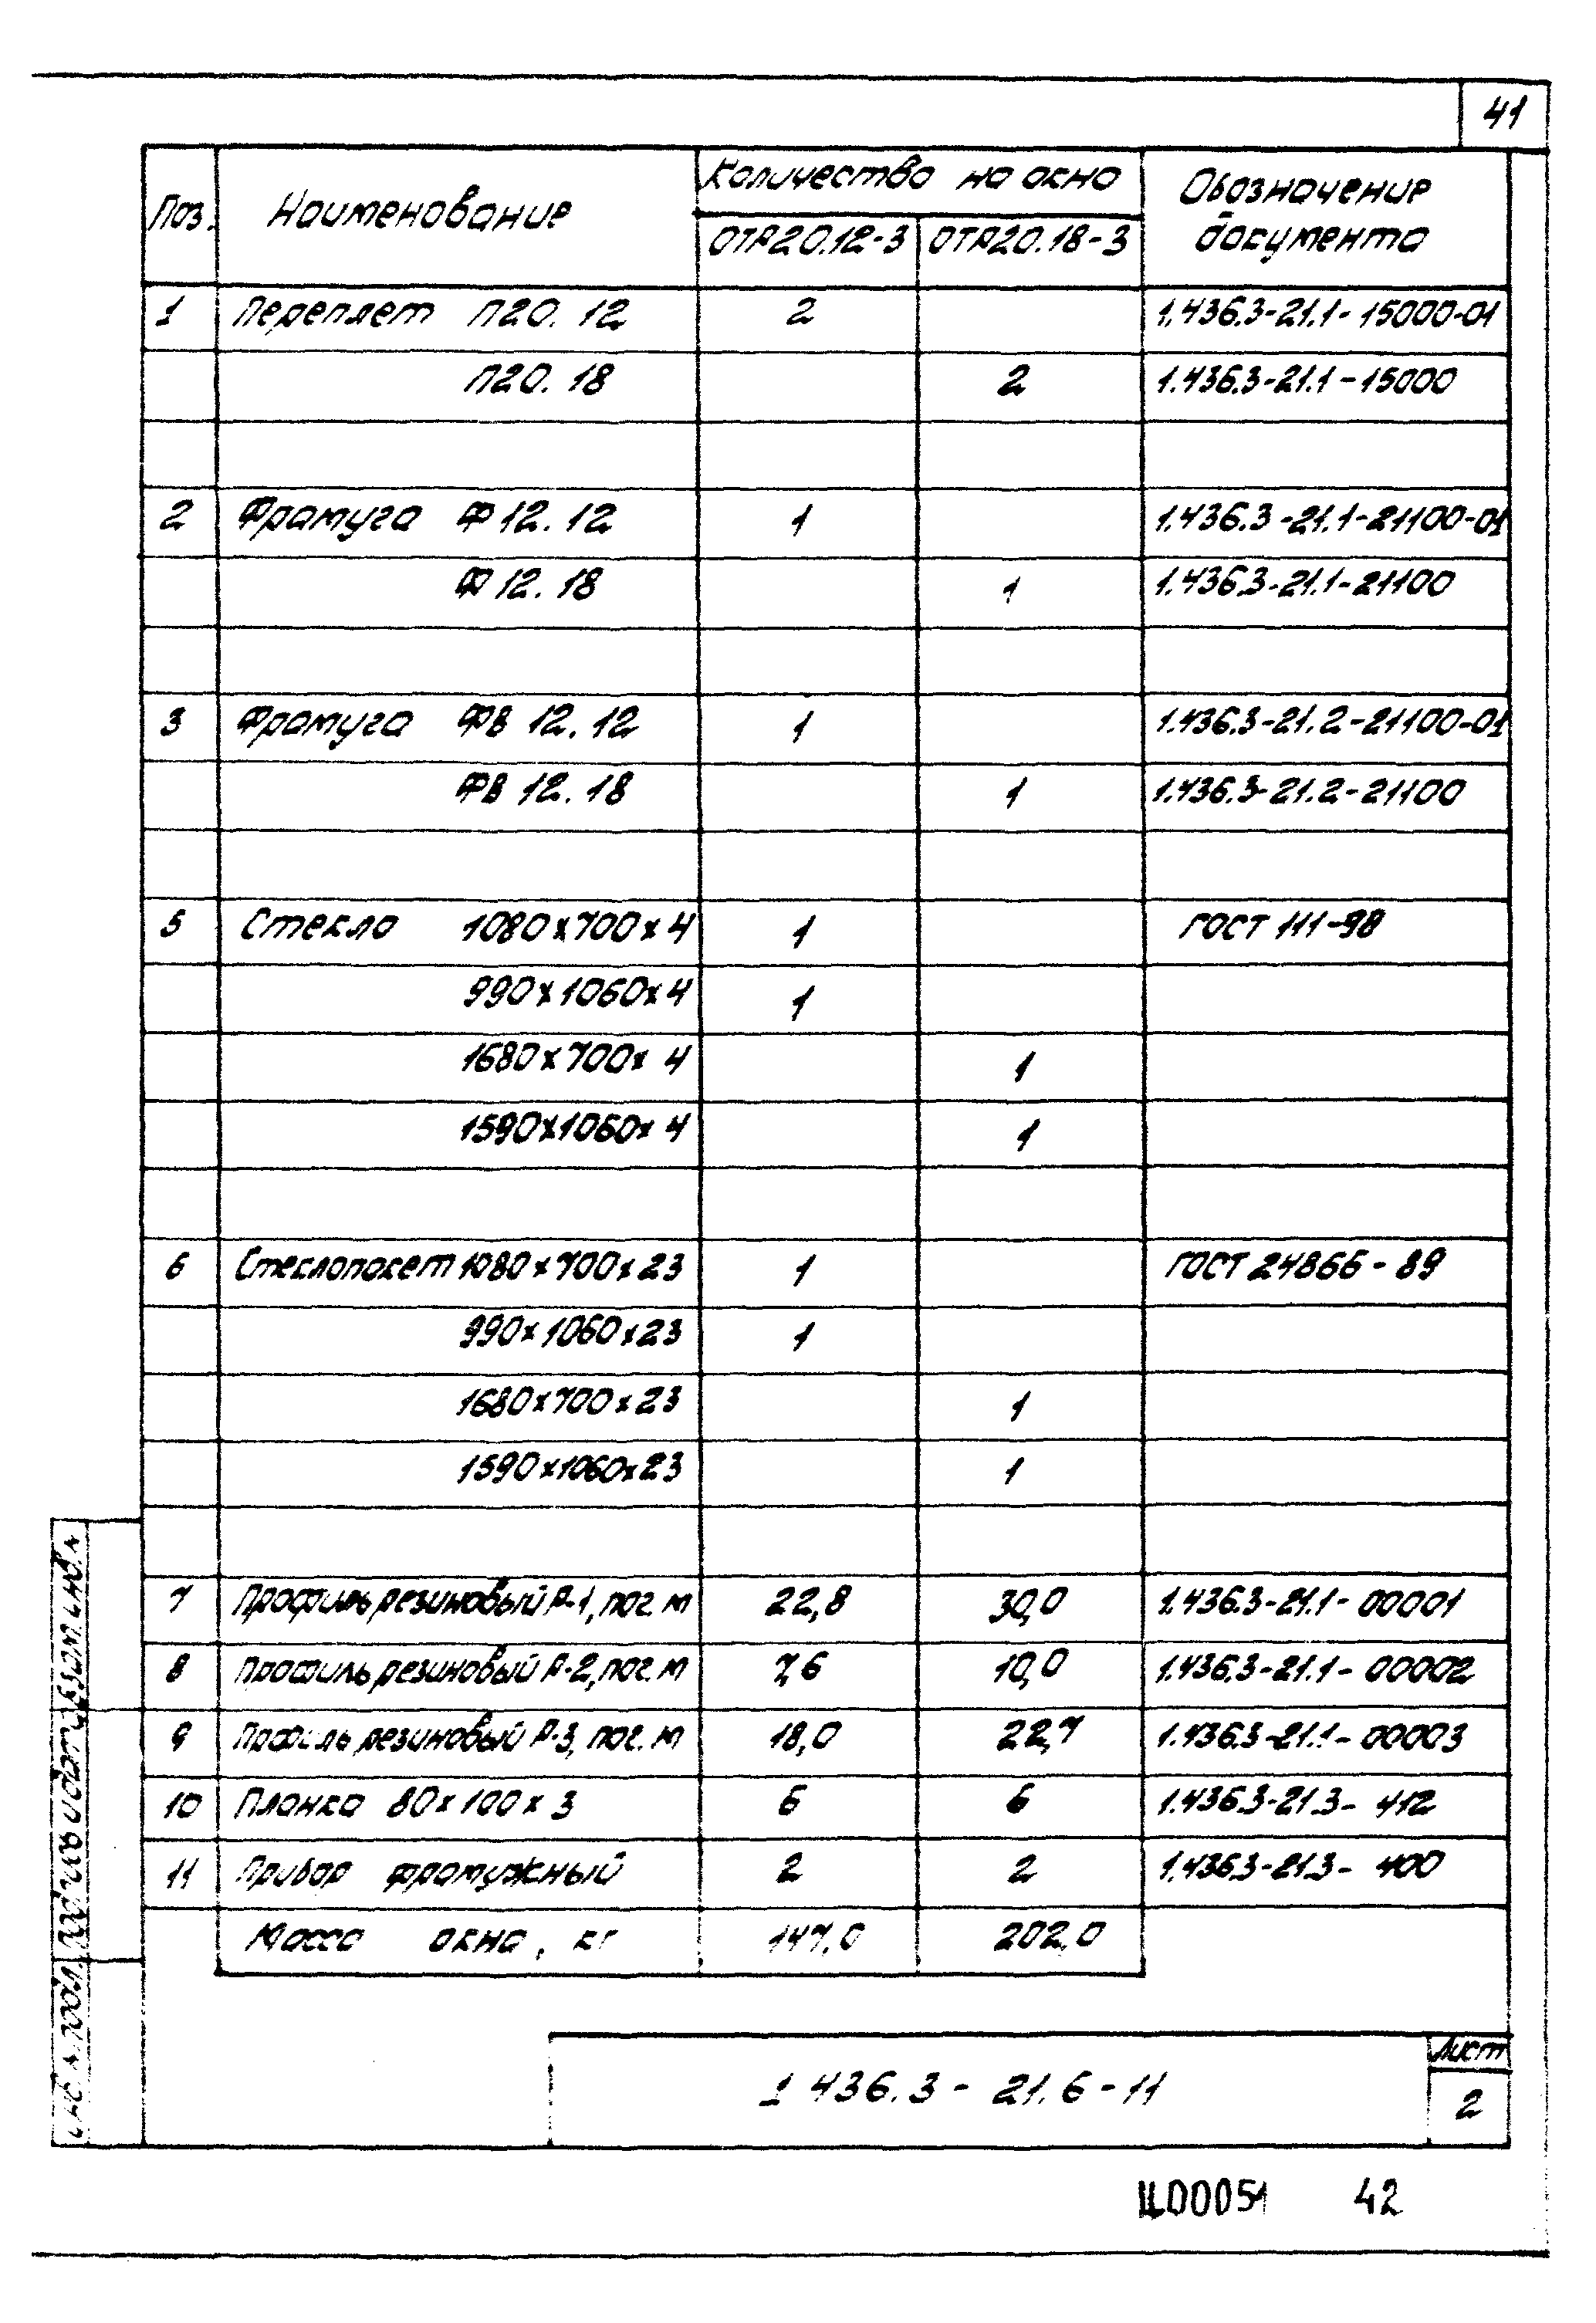 41
Поз. Наименование Количество на окно Обозначение документа
ОТР20.12-3 ОТР20.18-3
1 Переплет П20.12 2 1.436.3-21.1-15000-01
П20.18 2 1.436.3-21.1-15000
2 Фрамуга Ф12.12 1 1.436.3-21.1-21100-01
Ф12.18 1 1.436.3-21.1-21100
3 Фрамуга ФВ 12.12 1 1.436.3-21.2-21100-01
ФВ 12.18 1 1.436.3-21.2-21100
5 Стекло 1080х700х4 1 ГОСТ 111-98
990х1060х4 1
1680х700х4 1
1590х1060х4 1
6 Стеклопакет 1080х700х23 1 ГОСТ 24866-89
990х1060х23 1
1680х700х23 1
1590х1060х23 1
7 Профиль резиновый Р-1, пог. м 22,8 30,0 1.436.3-21.1-00001
8 Профиль резиновый Р-2, пог. м 7,6 10,0 1.436.3-21.1-00002
9 Профиль резиновый Р-3, пог. м 18,0 22,7 1.436.3-21.1-00003
10 Планка 80х100х3 6 6 1.436.3-21.3-412
11 Прибор фрамужный 2 2 1.436.3-21.3-400
Масса окна, кг 147,0 202,0
Инв. № подл. Подпись и дата Взам. инв. №
1 436.3-21.6-11
Лист
2
Ц00051 42